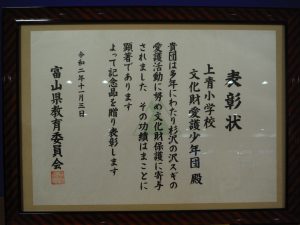 表彰状
上青小学校
文化財愛護少年団 殿
貴団は多年にわたり杉沢の沢スギの
愛護活動に努め文化財保護に寄与
されました その功績はまことに
顕著であります
よって記念品を贈り表彰します
令和二年十一月三日
富山県教育委員会